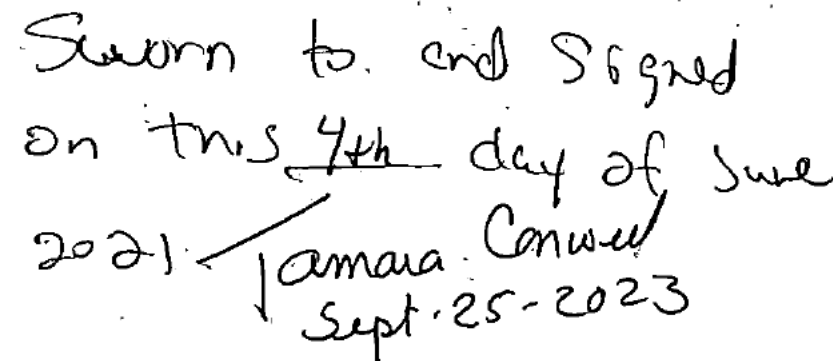 Sworn to. and Signed
on this 4th day of June
2021. Tamara. Conwell
Sept. 25-2023